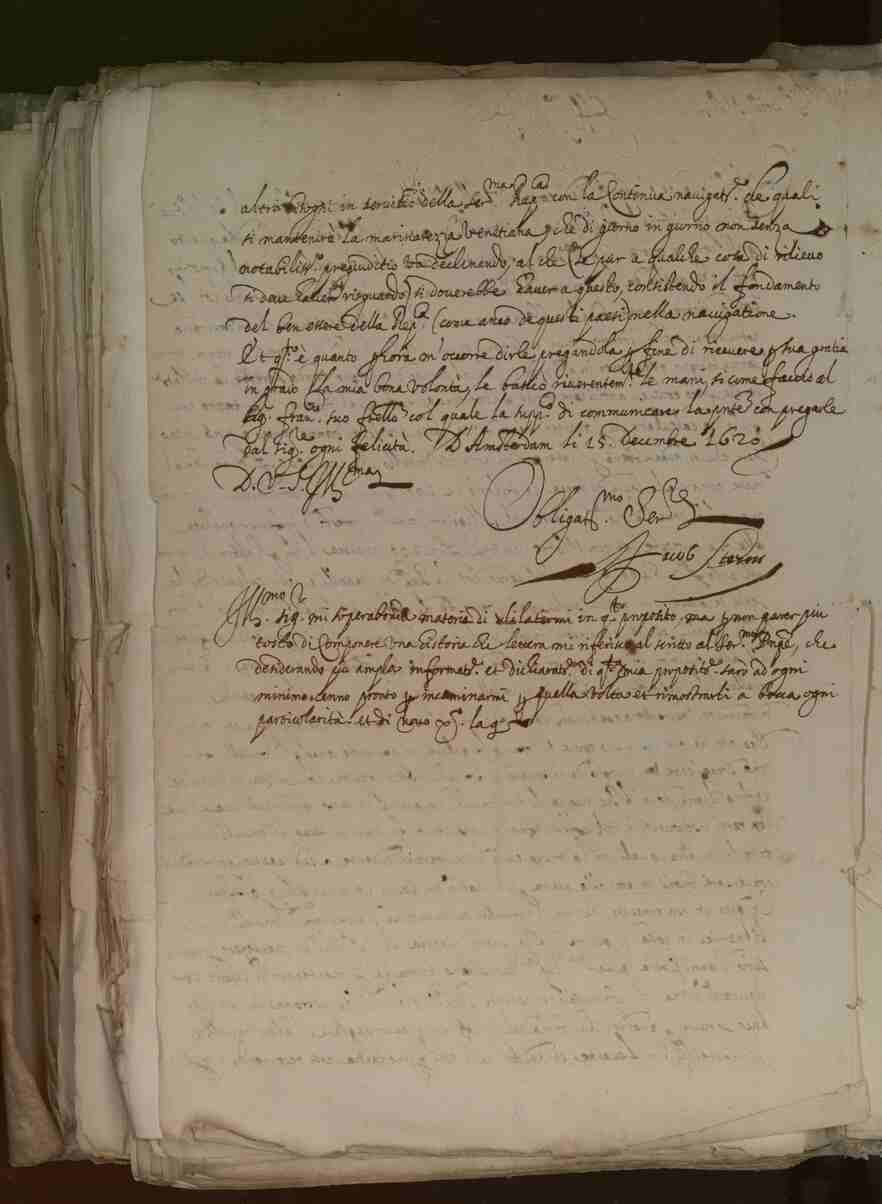 altro d'ogni in servitio della Ser.ma Rep.ca con la Continua navigat.e de quali
si mantenirà la marinarezza Venetiana, che di giorno in giorno non senza
notabiliss.o pregiuditio va declinando, al che (se pur a qualche cosa di rilievo
si deve haver risguardo) si doverebbe haver a questo, consistendo il fondamento
del ben essere della Rep.ca (come anco de questi paesi) nella navigatione.
Et q.to è quanto p hora m'occorre dirle pregandola p fine di ricevere p sua gratia
in grado la mia bona volontà, le bascio riverentem.te le mani, si come faccio al
Sig. Fran.co suo fratello col quale la supp.co di communicare la pnte con pregarle
dal Sig.re ogni felicità. D'Amsterdam li 15 Decembre 1620
D. V. S. Ill.ma
Obligatiss.mo Ser.re
Jacob
Ill.mo Sig. mi soprabonda materia di dilatarmi in q.to proposito, ma p non parer più
tosto di Componere una historia che lettera mi riferisco al scritto al Ser.mo Prnpe, che
desiderando più ampla informat.e et dichiarat.e di q.ta mia proposit.e sarò ad ogni
minimo cenno pronto p incaminarmi p quella volta et rimostrarli a bocca ogni
particolarità. et di novo la